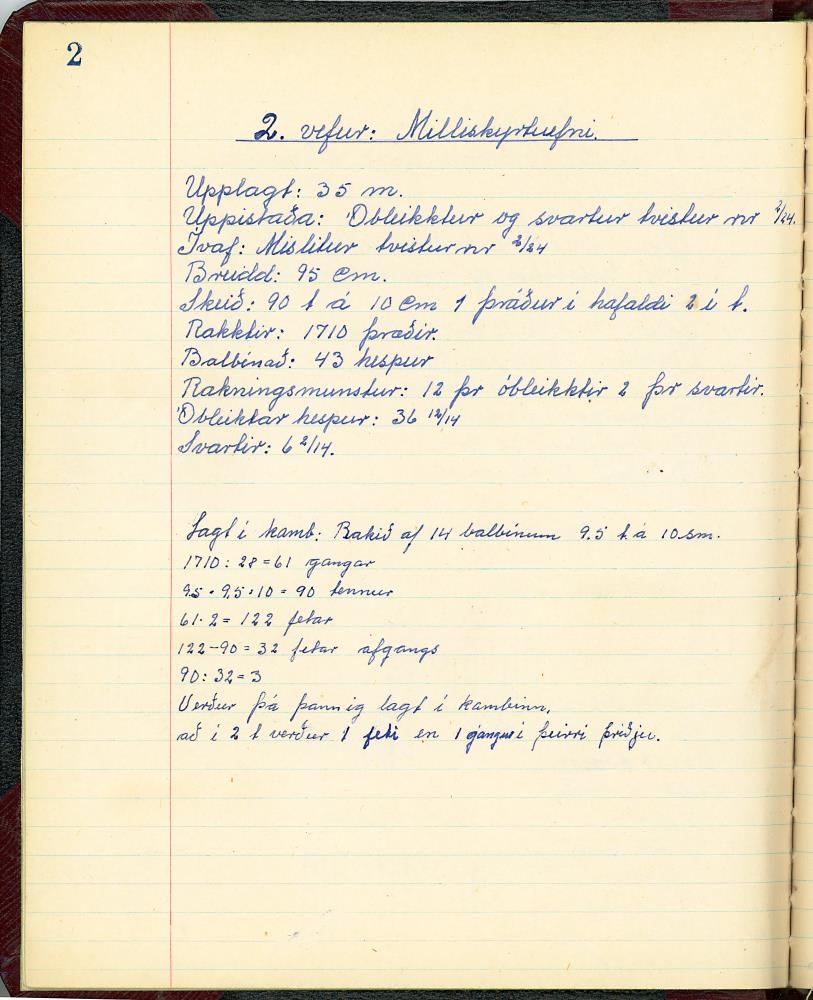 2
2. vefur: Milliskyrtuefni.
Upplagt: 35 m.
Uppistaða: Óbleikktur og svartur tvistur nr 2/24.
Ívaf: Mislitur tvistur nr 2/24
Breidd: 95 cm.
Skeið: 90 t á 10 cm 1 þráður í hafaldi 2 í t.
Rakktir: 1710 þræðir.
Balbínað: 43 hespur
Rakningsmunstur: 12 þr óbleikktir 2 þr svartir.
Óbleiktar hespur: 36 12/14
Svartir: 6 2/14.
Lagt í kamb: Rakið af 14 balbínum 9.5 t á 10 sm.
1710 : 28 = 61 gangar
95 · 9,5 : 10 = 90 tennur
61 · 2 = 122 fetar
122 - 90 = 32 fetar afgangs
90 : 32 = 3
Verður þá þannig lagt í kambinn,
að í 2 t verður 1 feti en 1 gangur í þeirri þriðju.